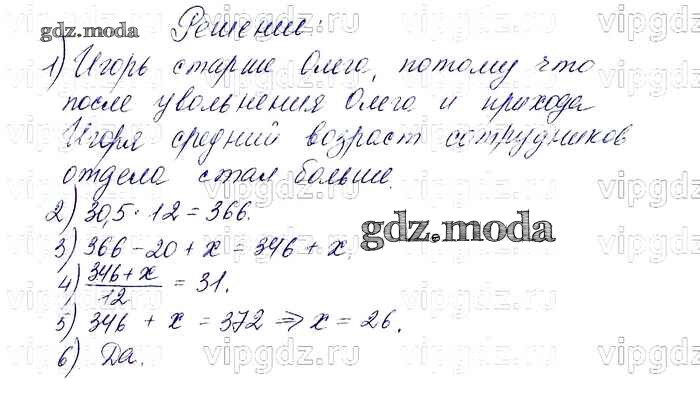 Решение:
1) Игорь старше Олега, потому что
после увольнения Олега и прихода
Игоря средний возраст сотрудников
отдела стал больше.
2) 30,5 · 12 = 366.
3) 366 − 20 + x = 346 + x.
4) (346 + x)/12 = 31.
5) 346 + x = 372 => x = 26.
6) Да.
gdz.moda
gdz.moda
vipgdz.ru
vipgdz.ru
vipgdz.ru
vipgdz.ru
vipgdz.ru
vipgdz.ru
vipgdz.ru
vipgdz.ru
vipgdz.ru